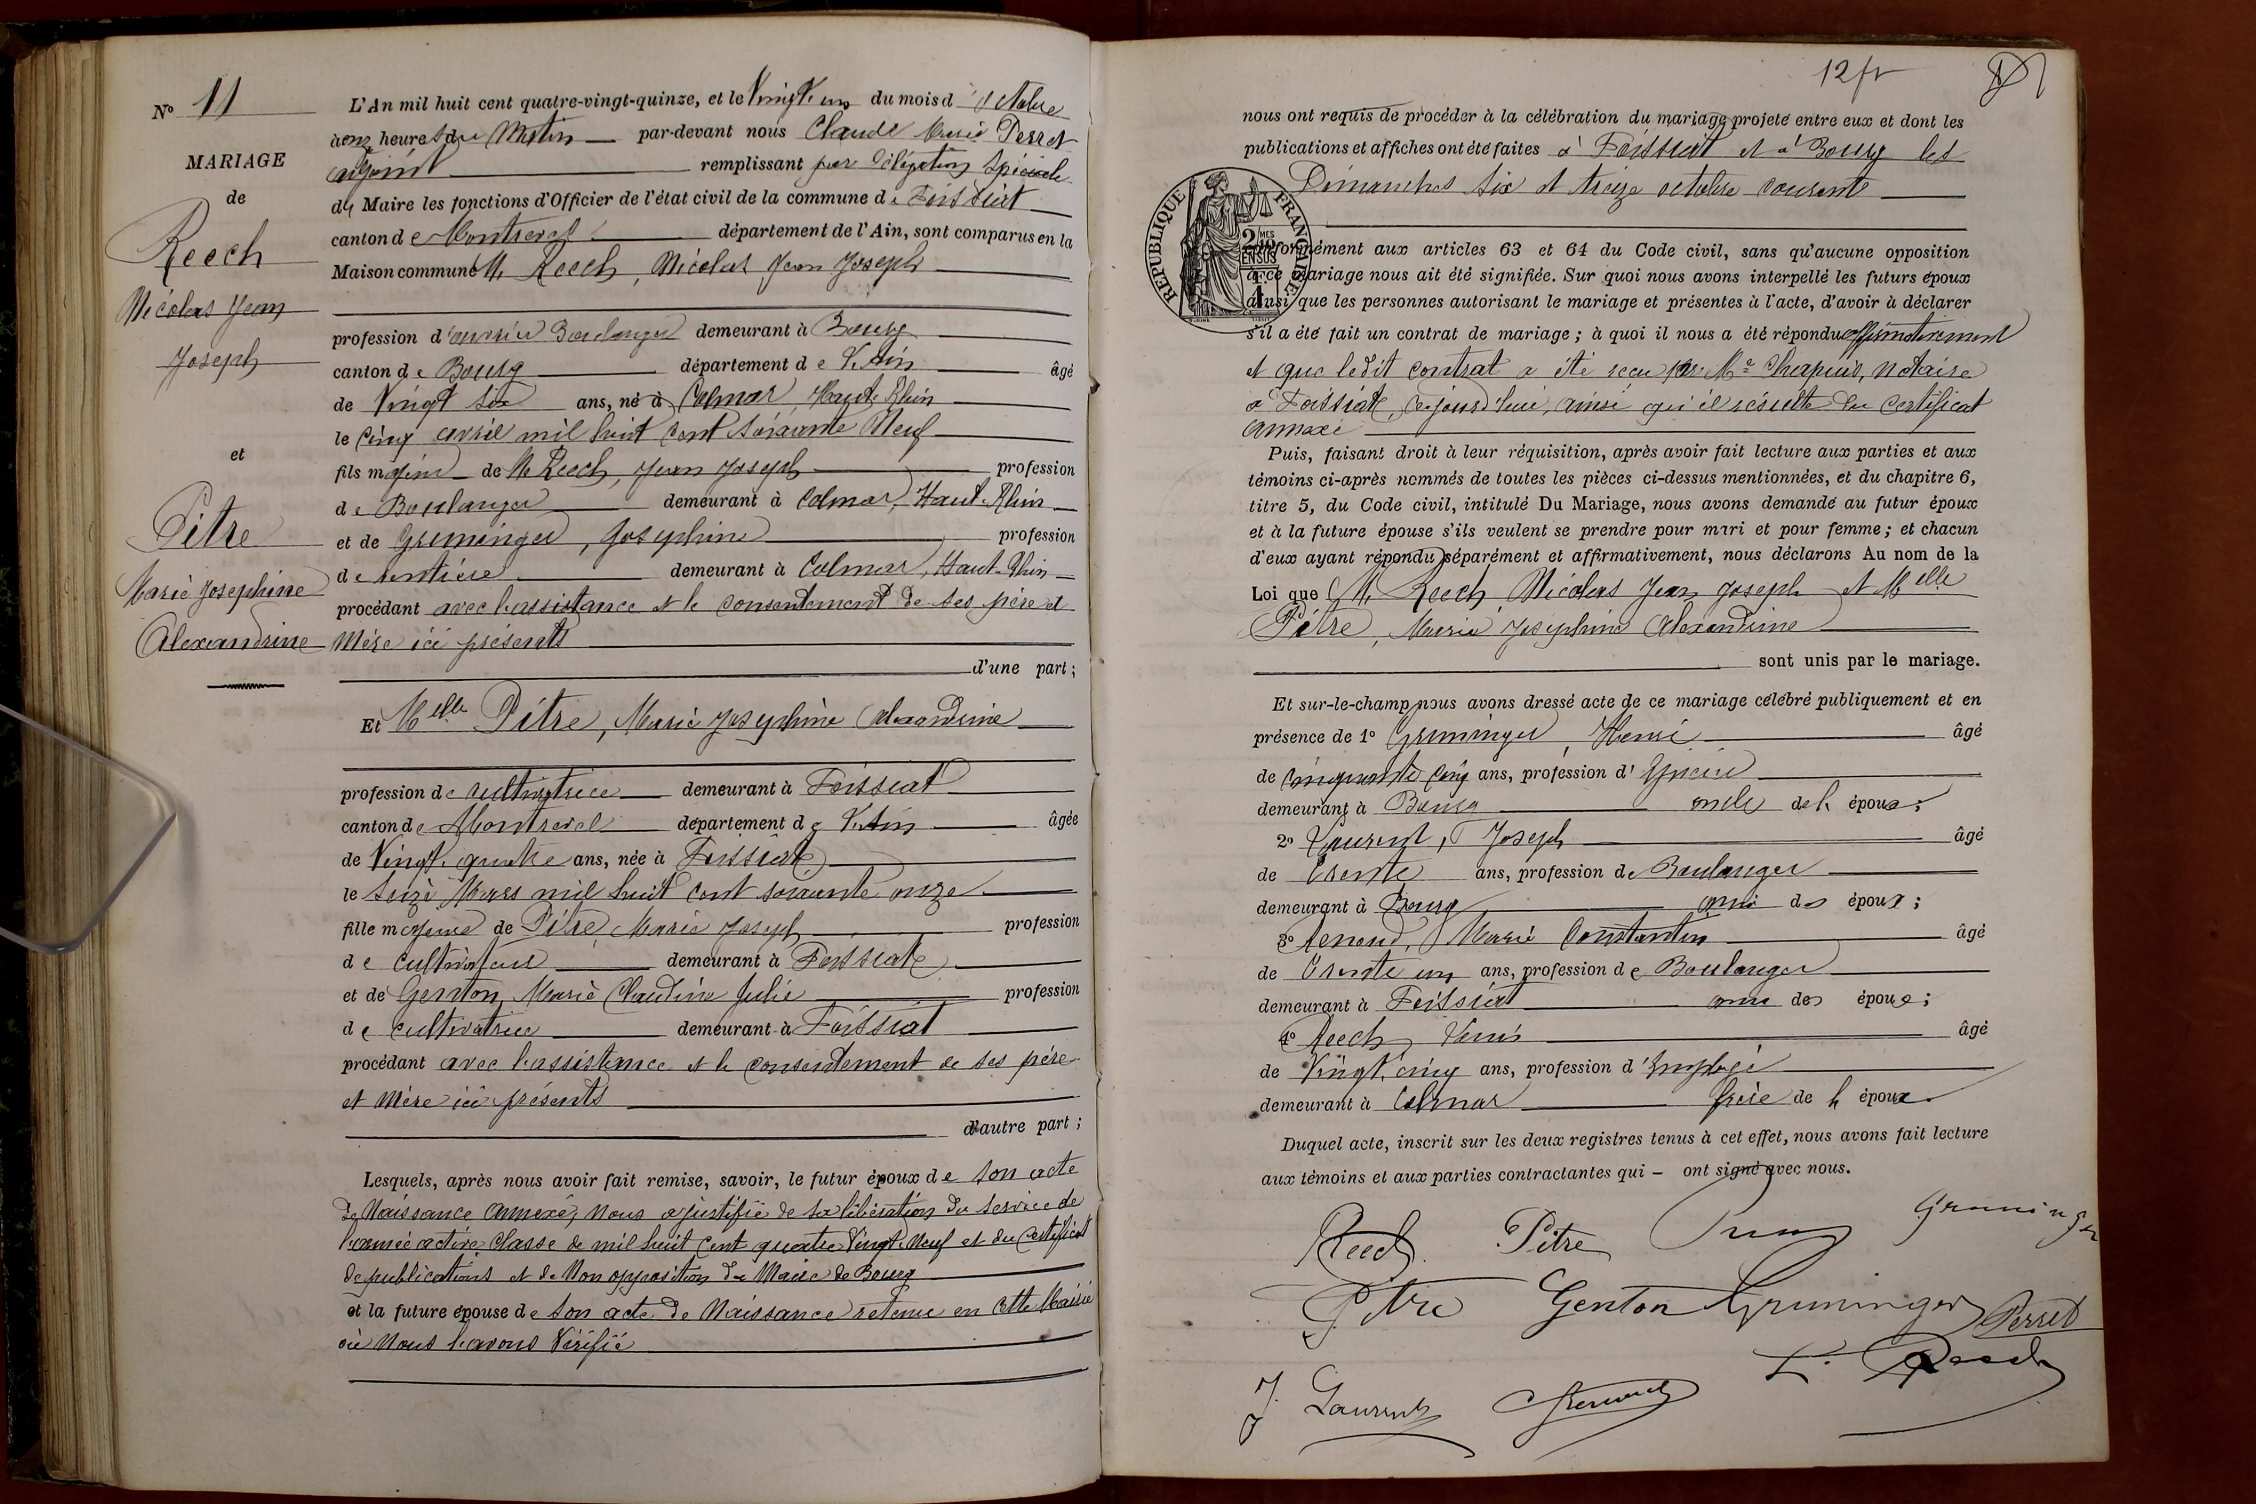 N° 11
MARIAGE
de
Reech
Nicolas Jean
Joseph
et
Pitre
Marie Josephine
Alexandrine
L'An mil huit cent quatre-vingt-quinze, et le Vingt un du mois d'octobre
à onz heures du Matin par-devant nous Claude Marie Perret
adjoint remplissant par délégation spéciale
du Maire les fonctions d'Officier de l'état civil de la commune de Foissiat
canton de Montrevel département de l'Ain, sont comparus en la
Maison commune M. Reech, Nicolas Jean Joseph
profession d'ouvrier Boulanger demeurant à Bourg
canton de Bourg département de l'Ain âgé
de Vingt six ans, né à Colmar, Haut-Rhin
le cinq avril mil huit cent soixante Neuf
fils majeur de M. Reech, Jean Joseph profession
de Boulanger demeurant à Colmar, Haut-Rhin
et de Gruninger, Josephine profession
de rentière demeurant à Colmar, Haut-Rhin
procédant avec l'assistance et le consentement de ses père et
Mère ici présents
d'une part;
Et Melle Pitre, Marie Josephine Alexandrine
profession de cultivatrice demeurant à Foissiat
canton de Montrevel département de l'Ain âgée
de Vingt quatre ans, née à Foissiat
le seize Mars mil huit cent soixante onze
fille majeure de Pitre, Marie Joseph profession
de cultivateur demeurant à Foissiat
et de Genton, Marie Claudine Julie profession
de cultivatrice demeurant à Foissiat
procédant avec l'assistance et le consentement de ses père
et Mère ici présents
d'autre part;
Lesquels, après nous avoir fait remise, savoir, le futur époux de son acte
de Naissance annexé, nous a justifié de sa libération du service de
l'armée active classe de mil huit cent quatre Vingt Neuf et du certificat
de publications et de Non opposition du Maire de Bourg
et la future épouse de son acte de Naissance retenu en cette Mairie
où Nous l'avons Vérifié
12 fr
nous ont requis de procéder à la célébration du mariage projeté entre eux et dont les
publications et affiches ont été faites à Foissiat et à Bourg les
Dimanches six et treize octobre courant
RÉPUBLIQUE FRANÇAISE
conformément aux articles 63 et 64 du Code civil, sans qu'aucune opposition
à ce mariage nous ait été signifiée. Sur quoi nous avons interpellé les futurs époux
ainsi que les personnes autorisant le mariage et présentes à l'acte, d'avoir à déclarer
s'il a été fait un contrat de mariage; à quoi il nous a été répondu affirmativement
et que ledit contrat a été recu par Me Chapuis, notaire
à Foissiat, ce jour d'hui, ainsi qu'il résulte du certificat
annexé
Puis, faisant droit à leur réquisition, après avoir fait lecture aux parties et aux
témoins ci-après nommés de toutes les pièces ci-dessus mentionnées, et du chapitre 6,
titre 5, du Code civil, intitulé Du Mariage, nous avons demandé au futur époux
et à la future épouse s'ils veulent se prendre pour mari et pour femme; et chacun
d'eux ayant répondu séparément et affirmativement, nous déclarons Au nom de la
Loi que M. Reech, Nicolas Jean Joseph et Melle
Pitre, Marie Josephine Alexandrine
sont unis par le mariage.
Et sur-le-champ nous avons dressé acte de ce mariage célébré publiquement et en
présence de 1° Gruninger, Henri âgé
de cinquante cinq ans, profession d'Epicier
demeurant à Bourg oncle de l'époux;
2° Laurent, Joseph âgé
de trente ans, profession de Boulanger
demeurant à Bourg ami des époux;
3° Renoud, Marie Constantin âgé
de trente un ans, profession de Boulanger
demeurant à Foissiat ami des époux;
4° Reech, Louis âgé
de Vingt cinq ans, profession d'Employé
demeurant à Colmar frère de l'époux.
Duquel acte, inscrit sur les deux registres tenus à cet effet, nous avons fait lecture
aux témoins et aux parties contractantes qui – ont signé avec nous.
Reech Pitre Gruninger
Pitre Genton Gruninger Perret
L. Reech
J. Laurent Renoud